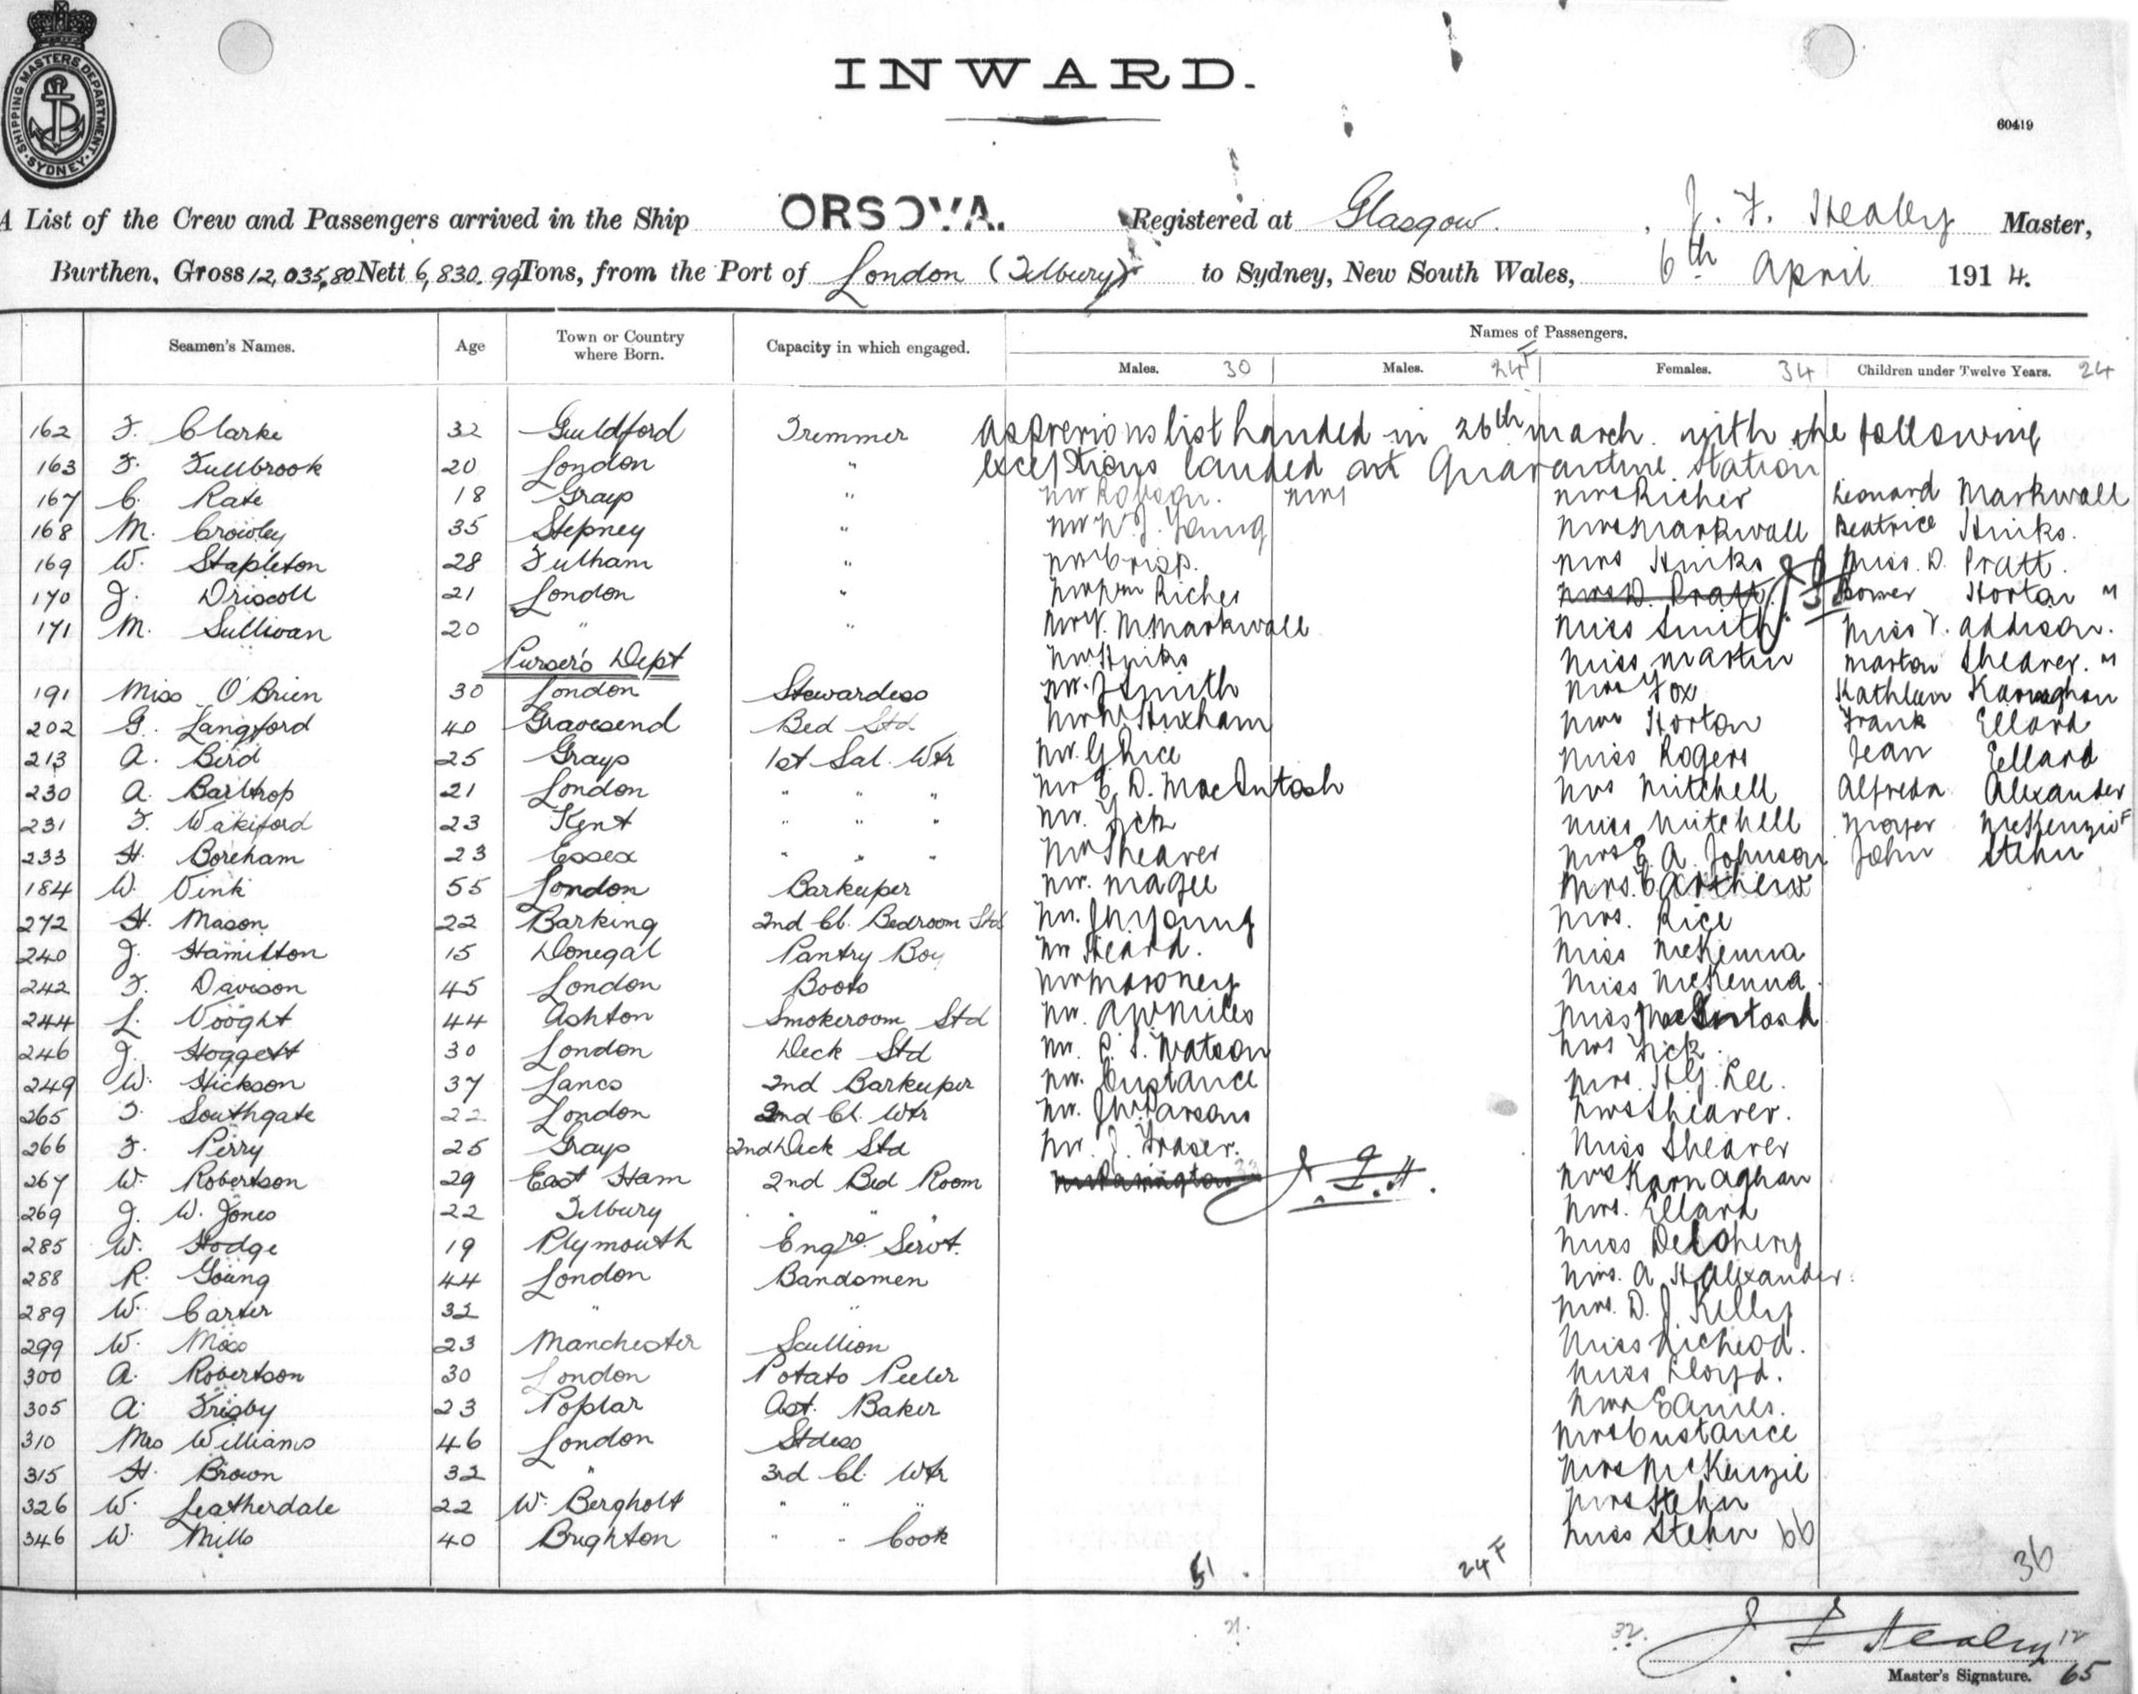 SHIPPING MASTERS DEPARTMENT · SYDNEY ·
INWARD.
60419
A List of the Crew and Passengers arrived in the Ship ORSOVA. Registered at Glasgow. , J. F. Healey Master,
Burthen, Gross 12,035.80 Nett 6,830.99 Tons, from the Port of London (Tilbury) to Sydney, New South Wales, 6th April 1914.
Seamen's Names. Age Town or Country where Born. Capacity in which engaged. Names of Passengers.
Males. 30 Males. 24F Females. 34 Children under Twelve Years. 24
162 F. Clarke 32 Guildford Trimmer As previous list handed in 26th March. with the following
163 F. Fullbrook 20 London " exceptions landed at Quarantine Station
167 C. Rate 18 Grays " Mr Robson. Mrs Richer Leonard Markwall
168 M. Crowley 35 Stepney " Mr W. J. Young Mrs Markwall Beatrice Hinks.
169 W. Stapleton 28 Fulham " Mr Crisp. Mrs Hinks Miss. D. Pratt.
170 J. Driscoll 21 London " Mr Wm Riches Mrs D. Pratt. Horton "
171 M. Sullivan 20 " " Mr V. M Markwall Miss Smith Miss V. Addison.
Purser's Dept Mr Hinks Miss Martin Marton Shearer. "
191 Miss O'Brien 30 London Stewardess Mr. J Smith Mrs Fox Kathleen Karnaghan
202 G. Langford 40 Gravesend Bed Std Mr W Huxham Mrs Horton Frank Ellard
213 A. Bird 25 Grays 1st Sal. Wtr Mr. G Rice Miss Rogers Jean Ellard
230 A. Barltrop 21 London " " " Mr E. D. MacIntosh Mrs Mitchell Alfreda Alexander
231 F. Wakiford 23 Kent " " " Mr. Fick Miss Mitchell McKenzie F
233 H. Boreham 23 Essex " " " Mr Shearer Mrs E. A. Johnson John Stehn
184 W. Vink 55 London Barkeeper Mr. Magee Mrs. C Arthew
272 H. Mason 22 Barking 2nd Cl. Bedroom Std Mr. J W Young Mrs. Rice
240 J. Hamilton 15 Donegal Pantry Boy Mr Heard. Miss McKenna
242 F. Davison 45 London Boots Mr Mooney Miss McKenna.
244 L. Vooght 44 Ashton Smokeroom Std Mr. A W Miles Miss MacIntosh
246 J. Hoggett 30 London Deck Std Mr. C. S. Watson Mrs Fick.
249 W. Hickson 37 Lancs 2nd Barkeeper Mr. Custance Mrs. H. G. Lee.
265 F. Southgate 22 London 2nd Cl. Wtr Mr. J W Parsons Mrs Shearer.
266 F. Perry 25 Grays 2nd Deck Std Mr. J. Fraser. Miss Shearer
267 W. Robertson 29 East Ham 2nd Bed Room J. F. H. Mrs Karnaghan
269 J. W. Jones 22 Tilbury " " " Mrs. Ellard
285 W. Hodge 19 Plymouth Engrs. Servt. Miss Delohery
288 R. Young 44 London Bandsmen Mrs. A. H. Alexander.
289 W. Carter 32 " " Mrs. D. J Kelly
299 W. Moss 23 Manchester Scullion Miss Nicheod.
300 A. Robertson 30 London Potato Peeler Miss Lloyd.
305 A. Frigby 23 Poplar Ast. Baker Mrs Eames.
310 Mrs Williams 46 London Stdess Mrs Custance
315 H. Brown 32 " 3rd Cl. Wtr Mrs McKenzie
326 W. Leatherdale 22 W. Bergholt " " " Mrs Stehn
346 W. Mills 40 Brighton " " Cook Miss Stehn 66
51. 24F 36
21. 32. J F Healey 12
Master's Signature. 65